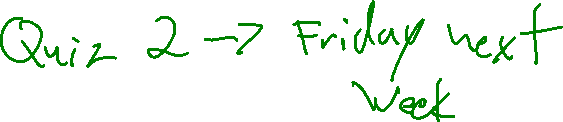 Quiz 2 → Friday next
week